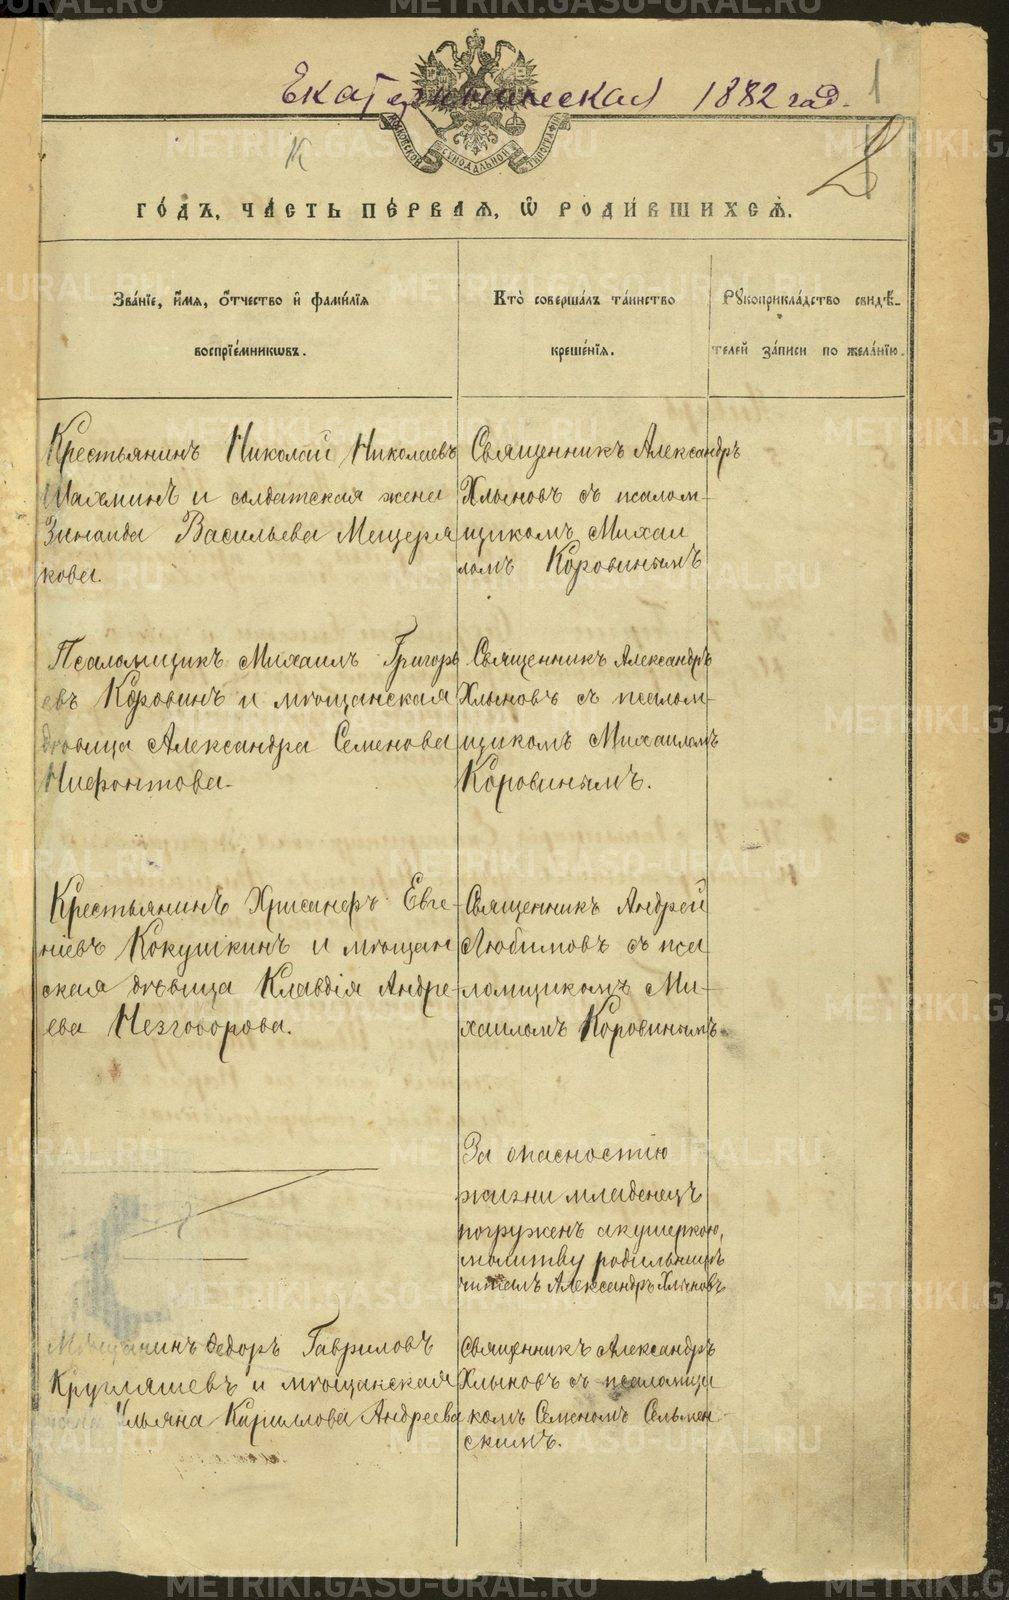 Екатерининская 1882 год.
1
МОСКОВСКОЙ СИНОДАЛЬНОЙ ТИПОГРАФІИ
К
2
ГО́ДЪ, ЧА́СТЬ ПЕ́РВАѦ, Ѡ РОДИ́ВШИХСѦ.
Зва́нїе, и҆́мѧ, ѻ҆́тчество и҆ фами́лїѧ
воспрїе́мникѡвъ.
Кто̀ соверша́лъ та́инство
креще́нїѧ.
Рꙋкоприкла́дство свидѣ́-
телей за́писи по жела́нїю.
Крестьянинъ Николай Николаевъ
и солдатская жена
Зинаида Васильева Мещеря
кова.
Священникъ Александръ
Хлыновъ съ псалом-
щикомъ Михаи
ломъ Коровинымъ
Псаломщикъ Михаилъ Григорь
евъ Коровинъ и мѣщанская
дѣвица Александра Семенова
Нифонтова.
Священникъ Александръ
Хлыновъ съ псалом-
щикомъ Михаиломъ
Коровинымъ.
Крестьянинъ Хрисанфъ Евге-
ніевъ Кокушкинъ и мѣщан
ская дѣвица Клавдія Андре-
ева Незговорова.
Священникъ Андрей
Любимовъ съ пса
ломщикомъ Ми-
хаиломъ Коровинымъ
За опасностію
жизни младенецъ
погруженъ акушеркою,
молитву родильницѣ
читалъ Александръ Хлыновъ
Мѣщанинъ Федоръ Гавриловъ
Кругляшевъ и мѣщанская
Ульяна Кириллова Андреева
Священникъ Александръ
Хлыновъ съ псаломщи
комъ Семеномъ Сельмен
скимъ.